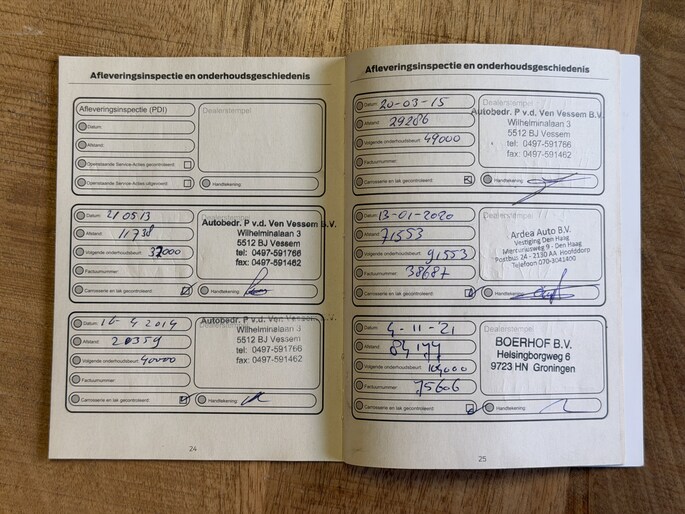 Afleveringsinspectie en onderhoudsgeschiedenis
Afleveringsinspectie (PDI)
Dealerstempel
Datum:
Afstand:
Openstaande Service Acties gecontroleerd:
Openstaande Service Acties uitgevoerd:
Handtekening:
Datum: 21 05 13
Afstand: 11738
Volgende onderhoudsbeurt: 32000
Factuurnummer:
Carrosserie en lak gecontroleerd:
Autobedr. P v.d. Ven Vessem B.V.
Wilhelminalaan 3
5512 BJ Vessem
tel: 0497-591766
fax: 0497-591462
Handtekening:
Datum: 16-4 2014
Afstand: 20359
Volgende onderhoudsbeurt: 40000
Factuurnummer:
Carrosserie en lak gecontroleerd:
Autobedr. P v.d. Ven Vessem B.V.
Wilhelminalaan 3
5512 BJ Vessem
tel: 0497-591766
fax: 0497-591462
Handtekening:
24
Afleveringsinspectie en onderhoudsgeschiedenis
Datum: 20-03-15
Afstand: 29286
Volgende onderhoudsbeurt: 49000
Factuurnummer:
Carrosserie en lak gecontroleerd:
Dealerstempel
Autobedr. P v.d. Ven Vessem B.V.
Wilhelminalaan 3
5512 BJ Vessem
tel: 0497-591766
fax: 0497-591462
Handtekening:
Datum: 13-01-2020
Afstand: 71553
Volgende onderhoudsbeurt: 91553
Factuurnummer: 38687
Carrosserie en lak gecontroleerd:
Dealerstempel
Ardea Auto B.V.
Vestiging Den Haag
Mercuriusweg 9 - Den Haag
Postbus 24 - 2130 AA Hoofddorp
Telefoon 070-3041400
Handtekening:
Datum: 4-11-'21
Afstand: 84177
Volgende onderhoudsbeurt: 104000
Factuurnummer: 75606
Carrosserie en lak gecontroleerd:
Dealerstempel
BOERHOF B.V.
Helsingborgweg 6
9723 HN Groningen
Handtekening:
25